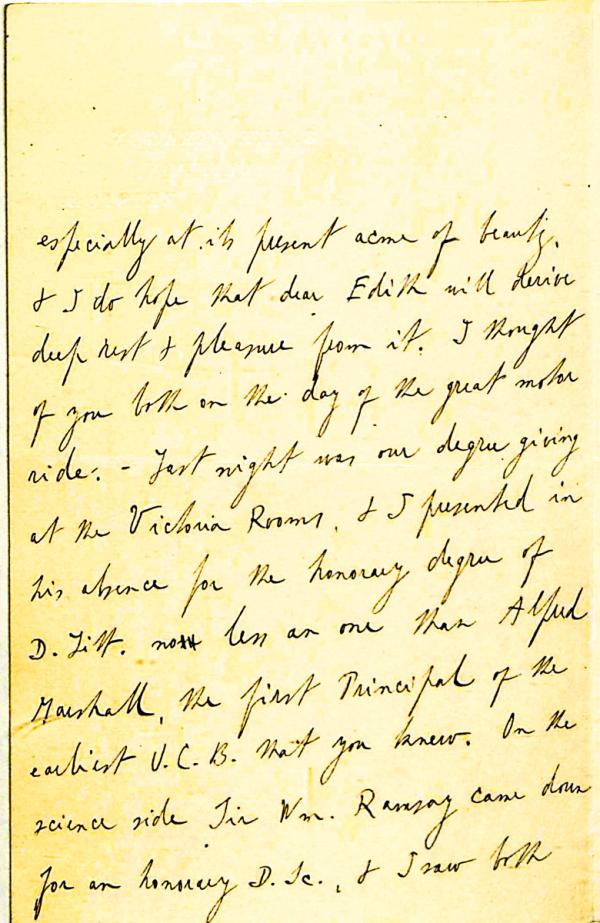 especially at its present acme of beauty,
& I do hope that dear Edith will derive
deep rest & pleasure from it. I thought
of you both on the day of the great motor
ride. - Last night was our degree giving
at the Victoria Rooms, & I presented in
his absence for the honorary degree of
D. Litt. no less an one than Alfred
Marshall, the first Principal of the
earliest U.C.B. that you knew. On the
science side Sir Wm. Ramsay came down
for an honorary D. Sc., & I saw both